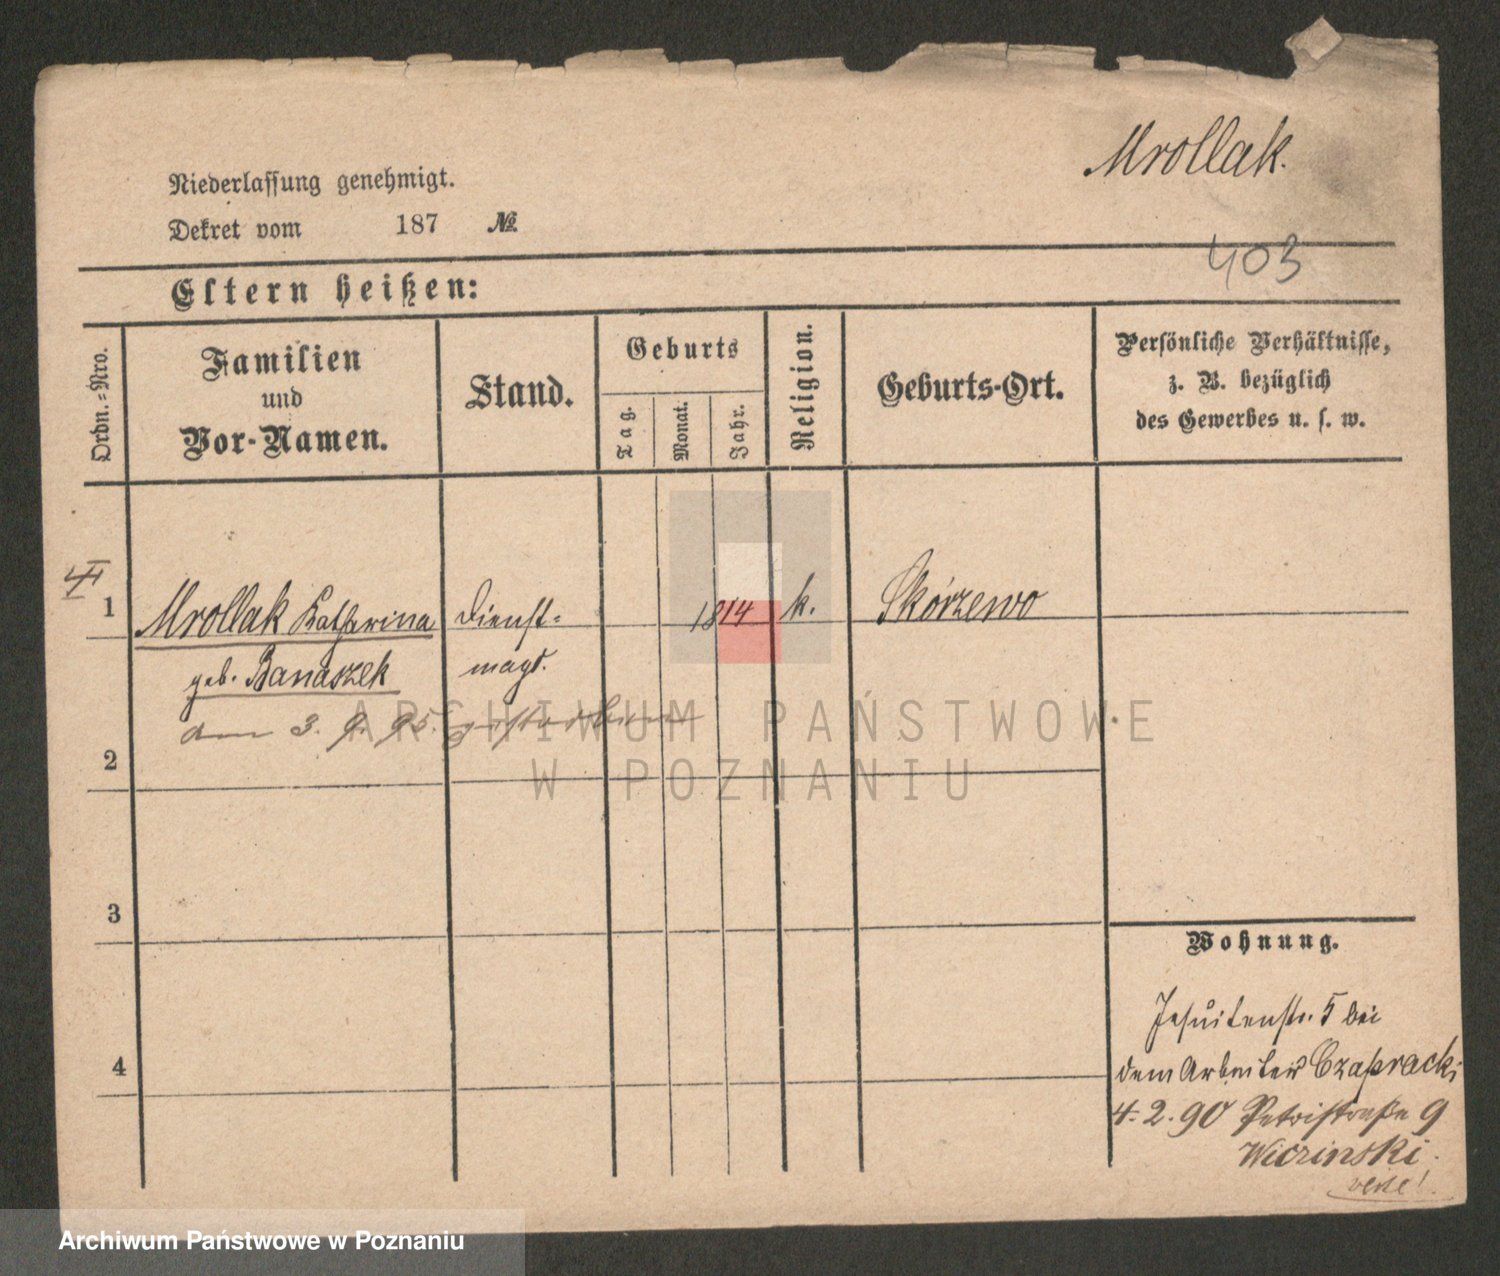 Mrollak.
Niederlassung genehmigt.
Dekret vom 187 №
403
Eltern heißen:
Ordn.-Nro.
Familien
und
Vor-Namen.
Stand.
Geburts
Tag.
Monat.
Jahr.
Religion.
Geburts-Ort.
Persönliche Verhältnisse,
z. B. bezüglich
des Gewerbes u. s. w.
1
Mrollak Katharina
geb. Banaszek
Dienst-
magd.
1814
k.
Skórzewo
den 3. 9. 95. gestorben
ARCHIWUM PAŃSTWOWE
W POZNANIU
2
3
4
Wohnung.
Jesuitenstr. 5 bei
dem Arbeiter Czapracki
4.2.90 Petristraße 9
Wiczinski.
Archiwum Państwowe w Poznaniu